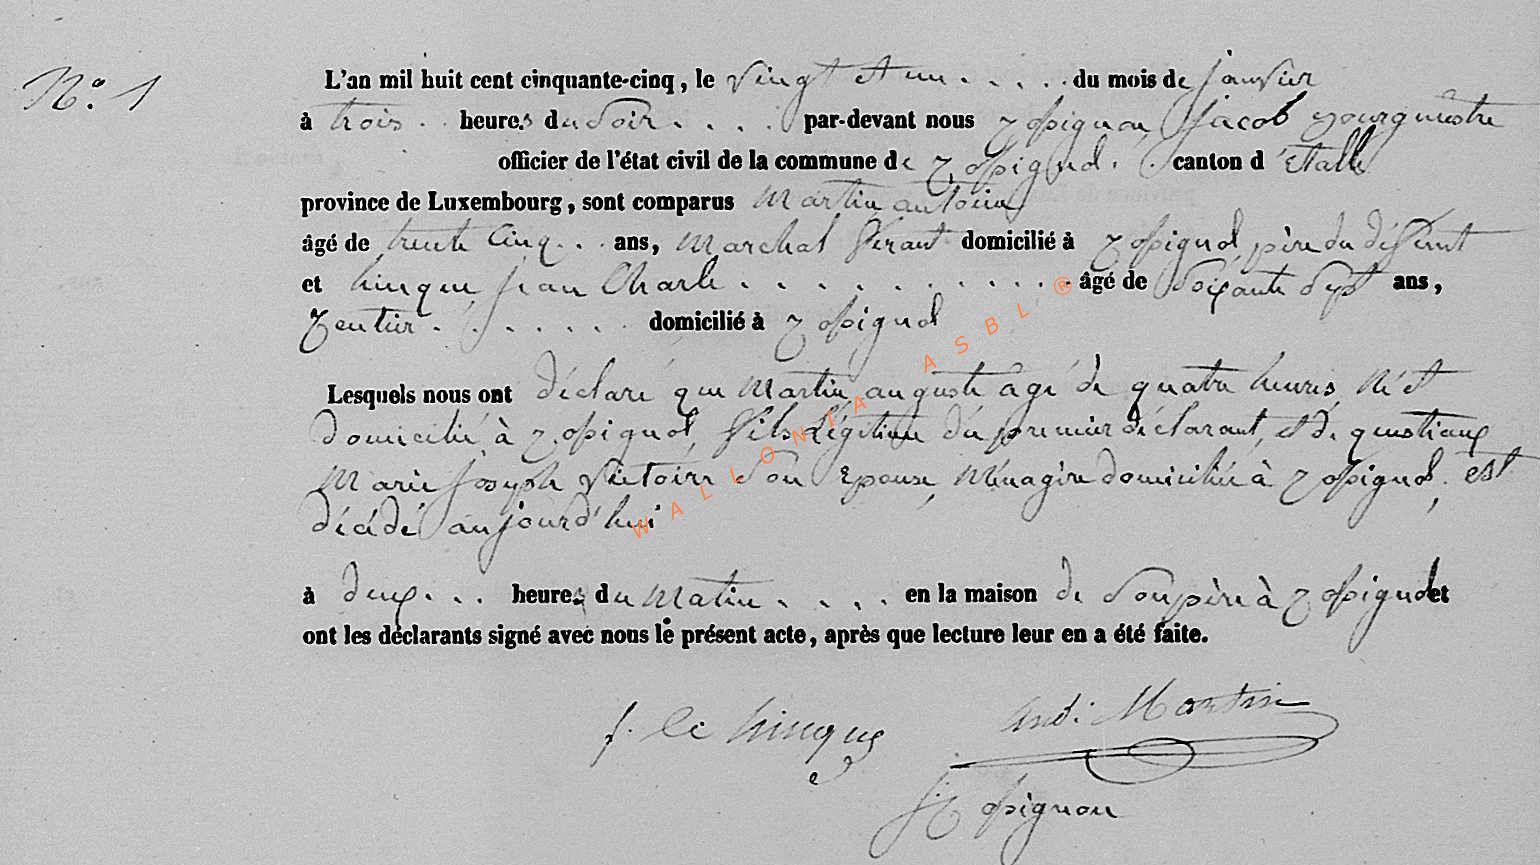 N° 1
L'an mil huit cent cinquante-cinq, le vingt et un . . . . du mois de janvier
à trois . . heures du soir . . . . par-devant nous Rossignon Jacob Bourgmestre
officier de l'état civil de la commune de Rossignol . . canton d'étalle
province de Luxembourg, sont comparus Martin antoine
âgé de trente cinq . . . ans, Marchal ferant domicilié à Rossignol, père du défunt
et hinque jean Charle . . . . . . . . . . . âgé de soixante sept ans,
Rentier . . . . . . . domicilié à Rossignol
Lesquels nous ont déclaré que Martin auguste âgé de quatre heures, Né et
domicilié à Rossignol, fils légitime du premier déclarant, et de
Marie joseph victoire son Epouse, Ménagère domiciliée à Rossignol, est
décédé aujourd'hui
à deux . . . heures du Matin . . . . en la maison de son père à Rossignol et
ont les déclarants signé avec nous le présent acte, après que lecture leur en a été faite.
j. Martin
hinque
Rossignon
WALLONIA ASBL ®